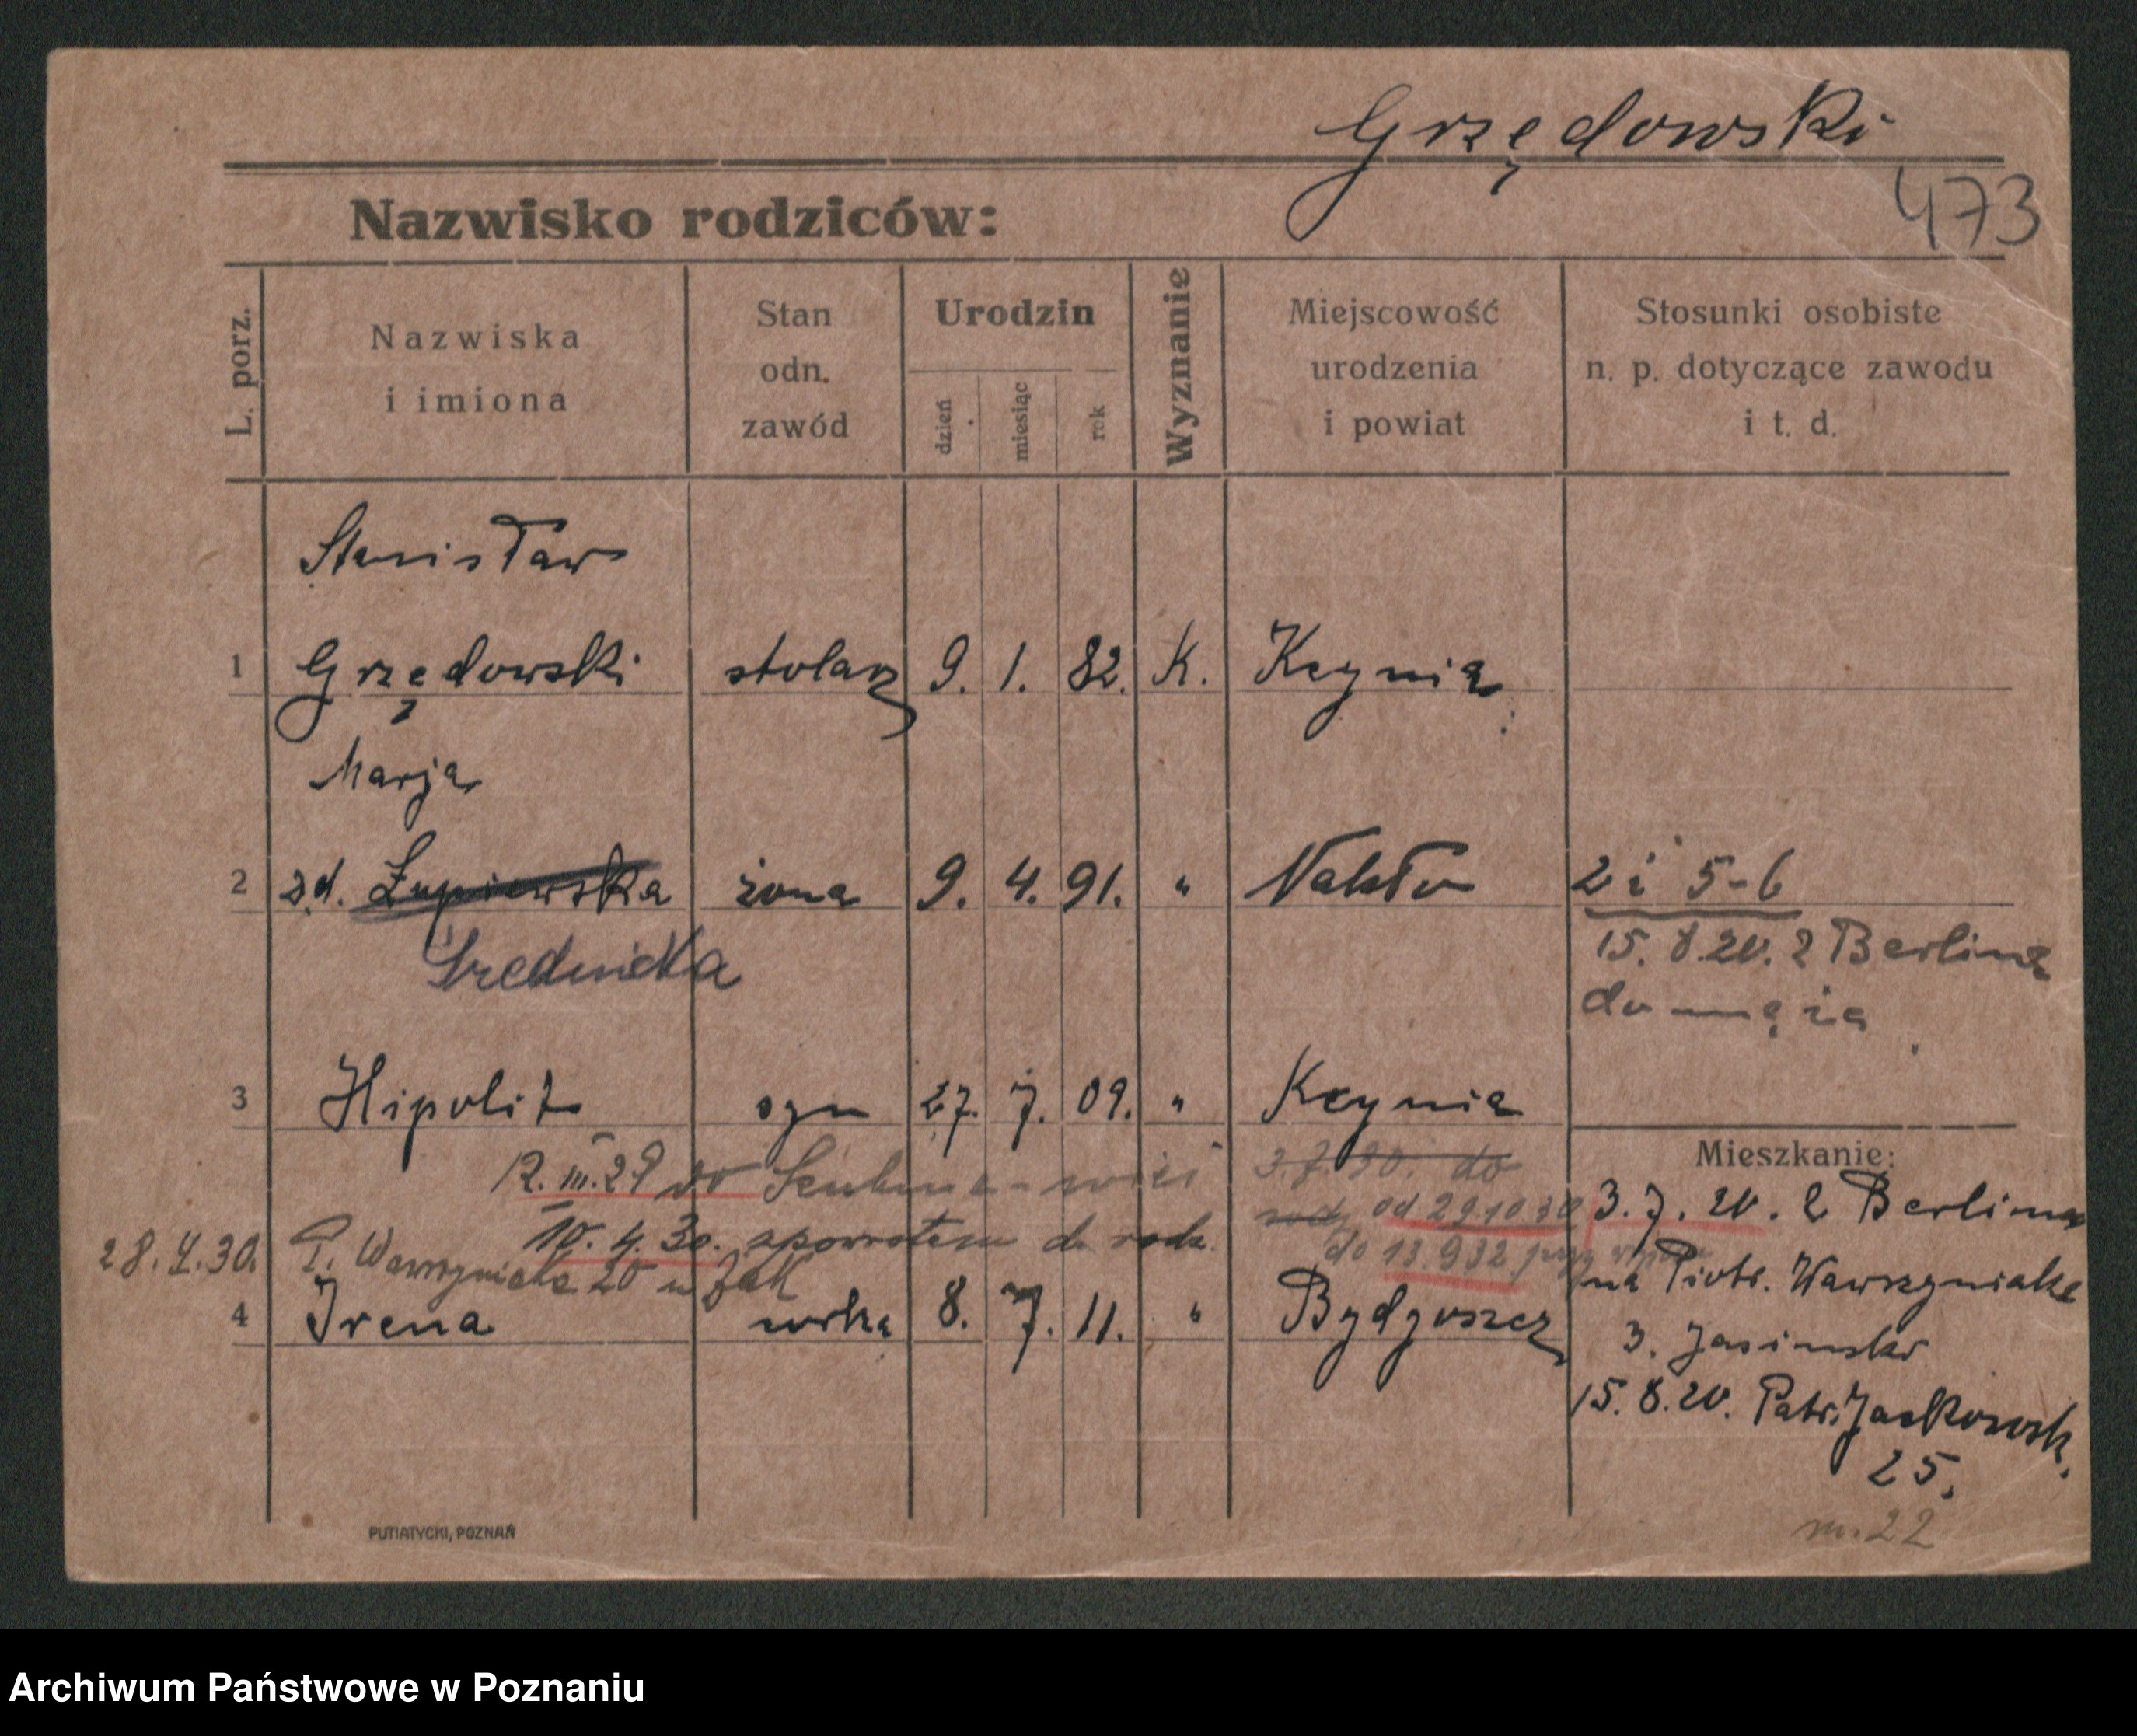 Grzędowski
473
Nazwisko rodziców:
L. porz.
Nazwiska
i imiona
Stan
odn.
zawód
Urodzin
dzień
miesiąc
rok
Wyznanie
Miejscowość
urodzenia
i powiat
Stosunki osobiste
n. p. dotyczące zawodu
i t. d.
Stanisław
1 Grzędowski stolarz 9. 1. 82. K. Kcynia
Marja
2 zd. żona 9. 4. 91. " Nakło 2 i 5-6
Średnicka
15.8.20. z Berlina
do męża
3 Hipolit syn 27. 7. 09. " Kcynia
Mieszkanie:
12.III.29 do Szubina-wieś 3.7.30. do
10.4.30. spowrotem do rodz. od 29.10 30
do 13.9.32
28.4.30. P. Wawrzyniaka 20 u Żak
4 Irena córka 8. 7. 11. " Bydgoszcz
3.7.20. z Berlina
na Piotr. Wawrzyniaka
3. Jasinski
15.8.20. Patr. Jackowsk.
25.
m. 22
PUTIATYCKI, POZNAŃ
Archiwum Państwowe w Poznaniu